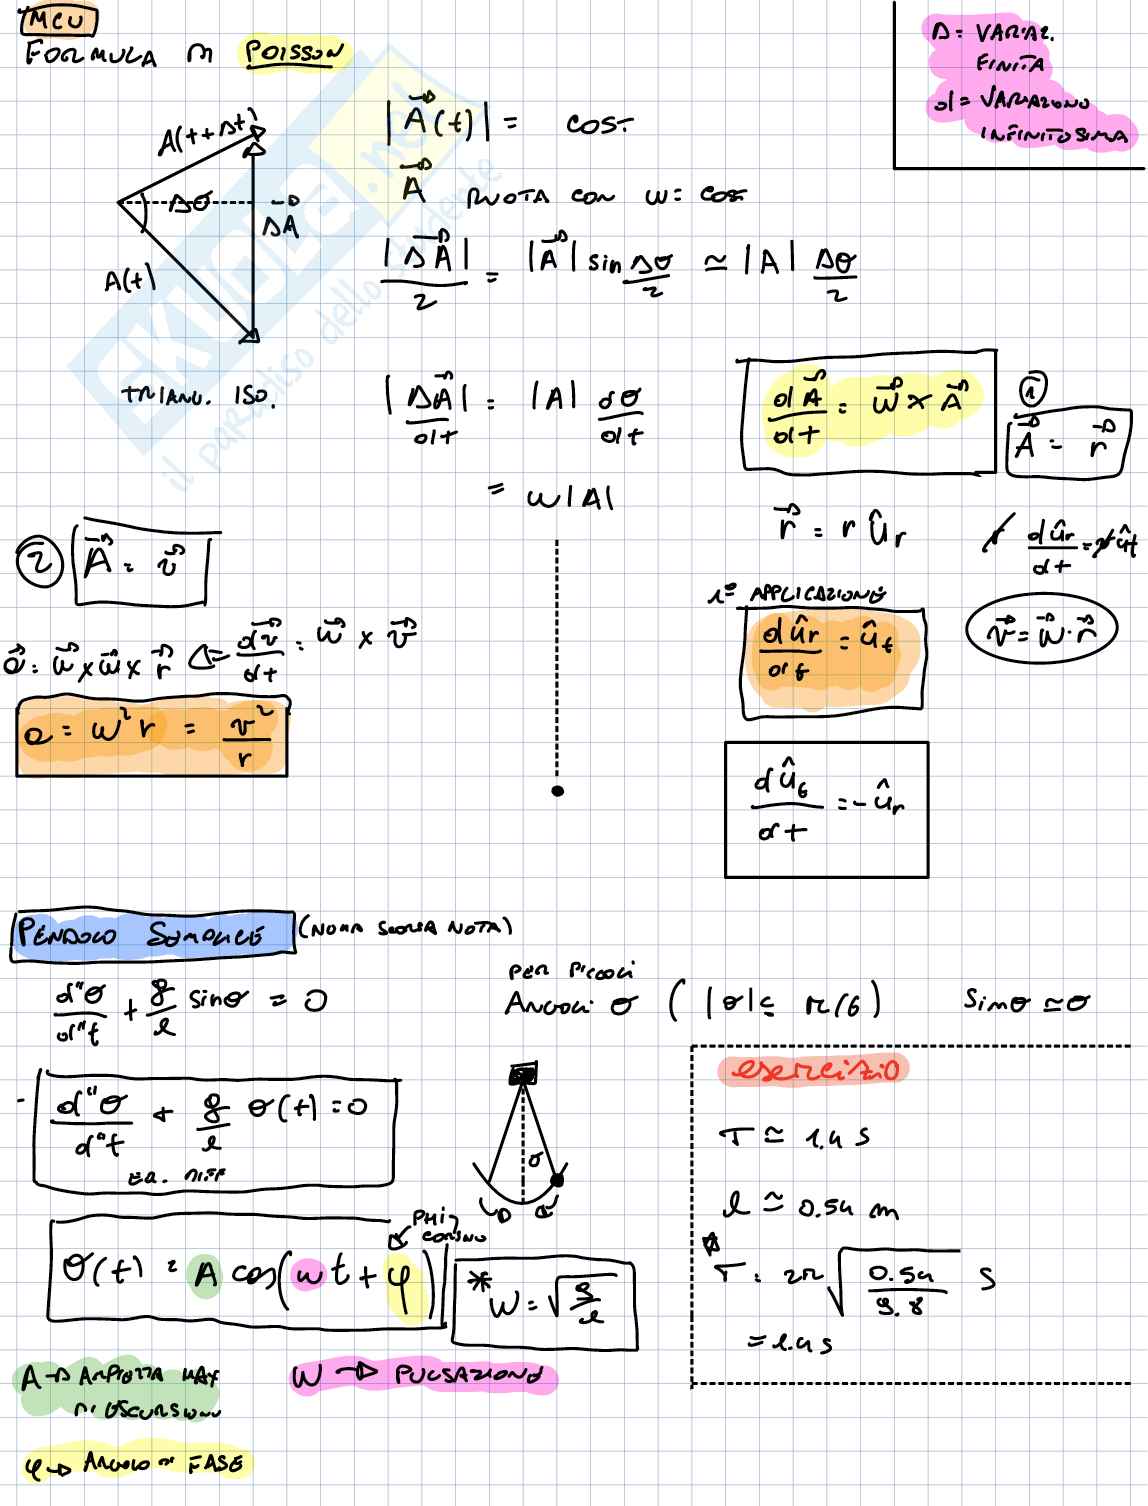 MCU
FORMULA DI POISSON
Δ = VARIAZ. FINITA
d = VARIAZIONE INFINITESIMA
A(t+Δt)
Δθ
ΔA
A(t)
TRIANG. ISO.
|A(t)| = COST.
A RUOTA CON ω = COST
|ΔA|/2 = |A| sin Δθ/2 ≃ |A| Δθ/2
|ΔA|/dt = |A| dθ/dt
= ω|A|
dA/dt = ω × A
1
A = r
r = r ûr
r dûr/dt = r ût
1ª APPLICAZIONE
dûr/dt = ût
v = ω · r
dût/dt = -ûr
2
A = v
a = ω × ω × r ⇐ dv/dt = ω × v
a = ω² r = v²/r
SKUOLA.net
il paradiso dello studente
PENDOLO SEMPLICE (NONA SCORSA NOTA)
d"θ/d"t + g/l sinθ = 0
PER PICCOLI
ANGOLI θ (|θ| ≤ π/6) Sinθ ≃ θ
d"θ/d"t + g/l θ(t) = 0
EQ. DIFF
θ
θ(t) = A cos(ωt + φ)
PHI
CORSIVO
* ω = √g/l
esercizio
T ≃ 1.4 s
l ≃ 0.54 m
T = 2π √0.54/9.8 s
= 1.4 s
A → AMPIEZZA MAX
DI ESCURSION
ω → PULSAZIONE
φ → ANGOLO DI FASE